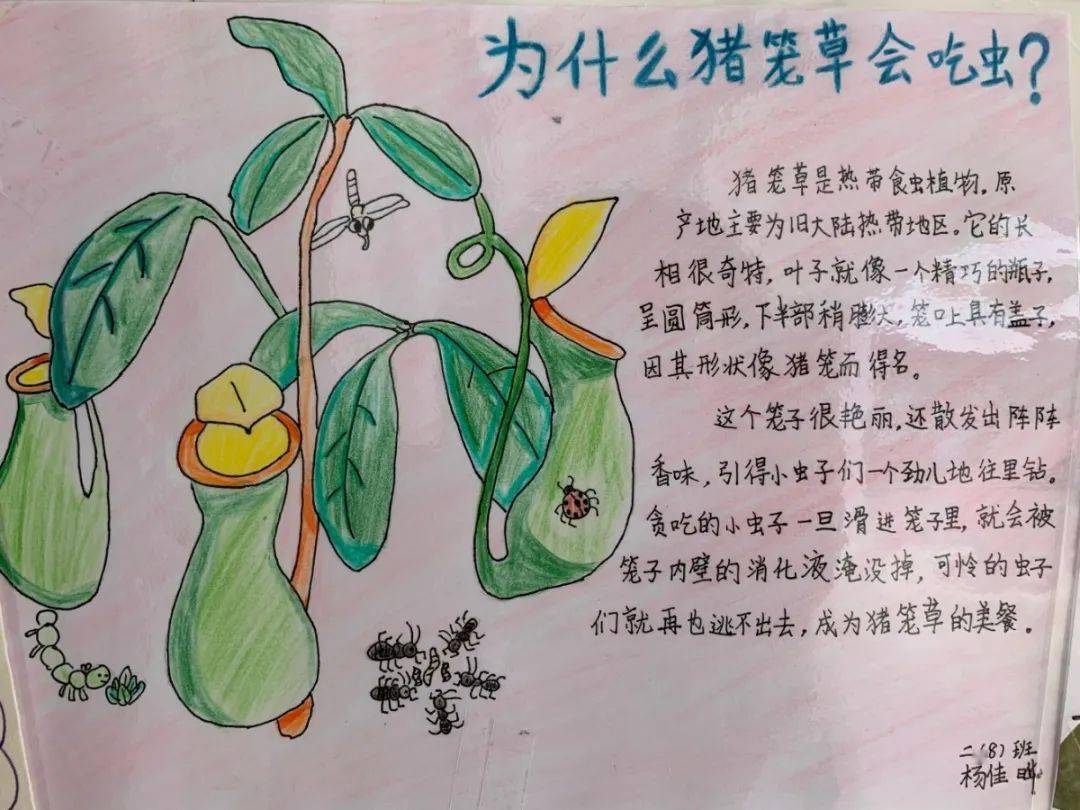 为什么猪笼草会吃虫?
猪笼草是热带食虫植物。原
产地主要为旧大陆热带地区。它的长
相很奇特,叶子就像一个精巧的瓶子,
呈圆筒形,下半部稍膨大,笼口上具有盖子,
因其形状像猪笼而得名。
这个笼子很艳丽,还散发出阵阵
香味,引得小虫子们一个劲儿地往里钻。
贪吃的小虫子一旦滑进笼子里,就会被
笼子内壁的消化液淹没掉,可怜的虫子
们就再也逃不出去,成为猪笼草的美餐。
二(8)班
杨佳